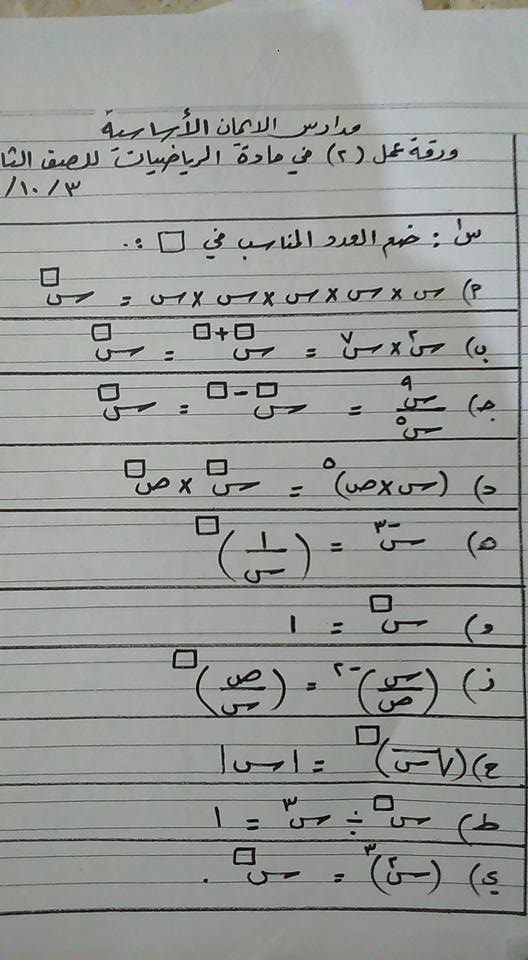 مدارس الايمان الأساسية
ورقة عمل (٢) في مادة الرياضيات للصف
/١٠/٣
س١: ضع العدد المناسب في □ :.
أ) س × س × س × س × س = س^□
ب) س^٢ × س^٧ = س^(□+□) = س^□
جـ) س^٩ / س^٥ = س^(□-□) = س^□
د) (س × ص)^٥ = س^□ × ص^□
هـ) س^-٣ = (١/س)^□
و) س^□ = ١
ز) (س/ص)^-٢ = (ص/س)^□
ح) (√س)^□ = |س|
ط) س^□ ÷ س^٣ = ١
ي) (س^٢)^٣ = س^□ .